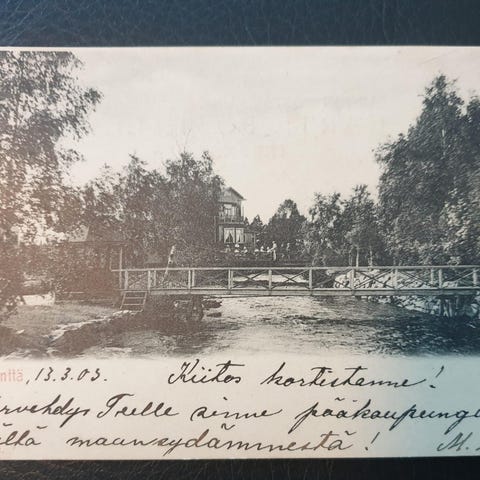 nttä, 13.3.03. Kiitos kortistanne!
rvehdys Teille sinne pääkaupungi
ältä maansydämmestä!
M.